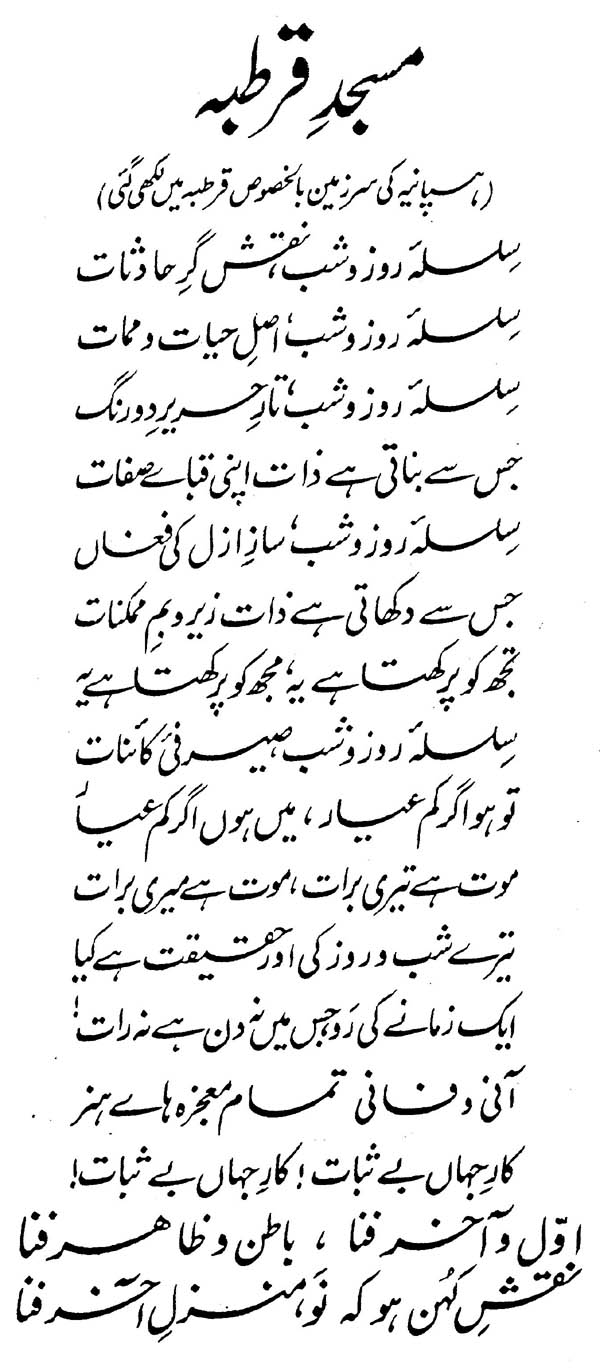 مسجدِ قرطبہ
(ہسپانیہ کی سرزمین بالخصوص قرطبہ میں لکھی گئی)
سلسلۂ روز و شب، نقش گرِ حادثات
سلسلۂ روز و شب، اصلِ حیات و ممات
سلسلۂ روز و شب، تارِ حریرِ دو رنگ
جس سے بناتی ہے ذات اپنی قبائے صفات
سلسلۂ روز و شب، سازِ ازل کی فغاں
جس سے دکھاتی ہے ذات زیر و بمِ ممکنات
تجھ کو پرکھتا ہے یہ، مجھ کو پرکھتا ہے یہ
سلسلۂ روز و شب، صیرفیٔ کائنات
تو ہو اگر کم عیار، میں ہوں اگر کم عیار
موت ہے تیری برات، موت ہے میری برات
تیرے شب و روز کی اور حقیقت ہے کیا
ایک زمانے کی رَو جس میں نہ دن ہے نہ رات!
آنی و فانی تمام معجزہ ہائے ہنر
کارِ جہاں بے ثبات! کارِ جہاں بے ثبات!
اوّل و آخر فنا، باطن و ظاہر فنا
نقشِ کُہن ہو کہ نَو، منزلِ آخر فنا